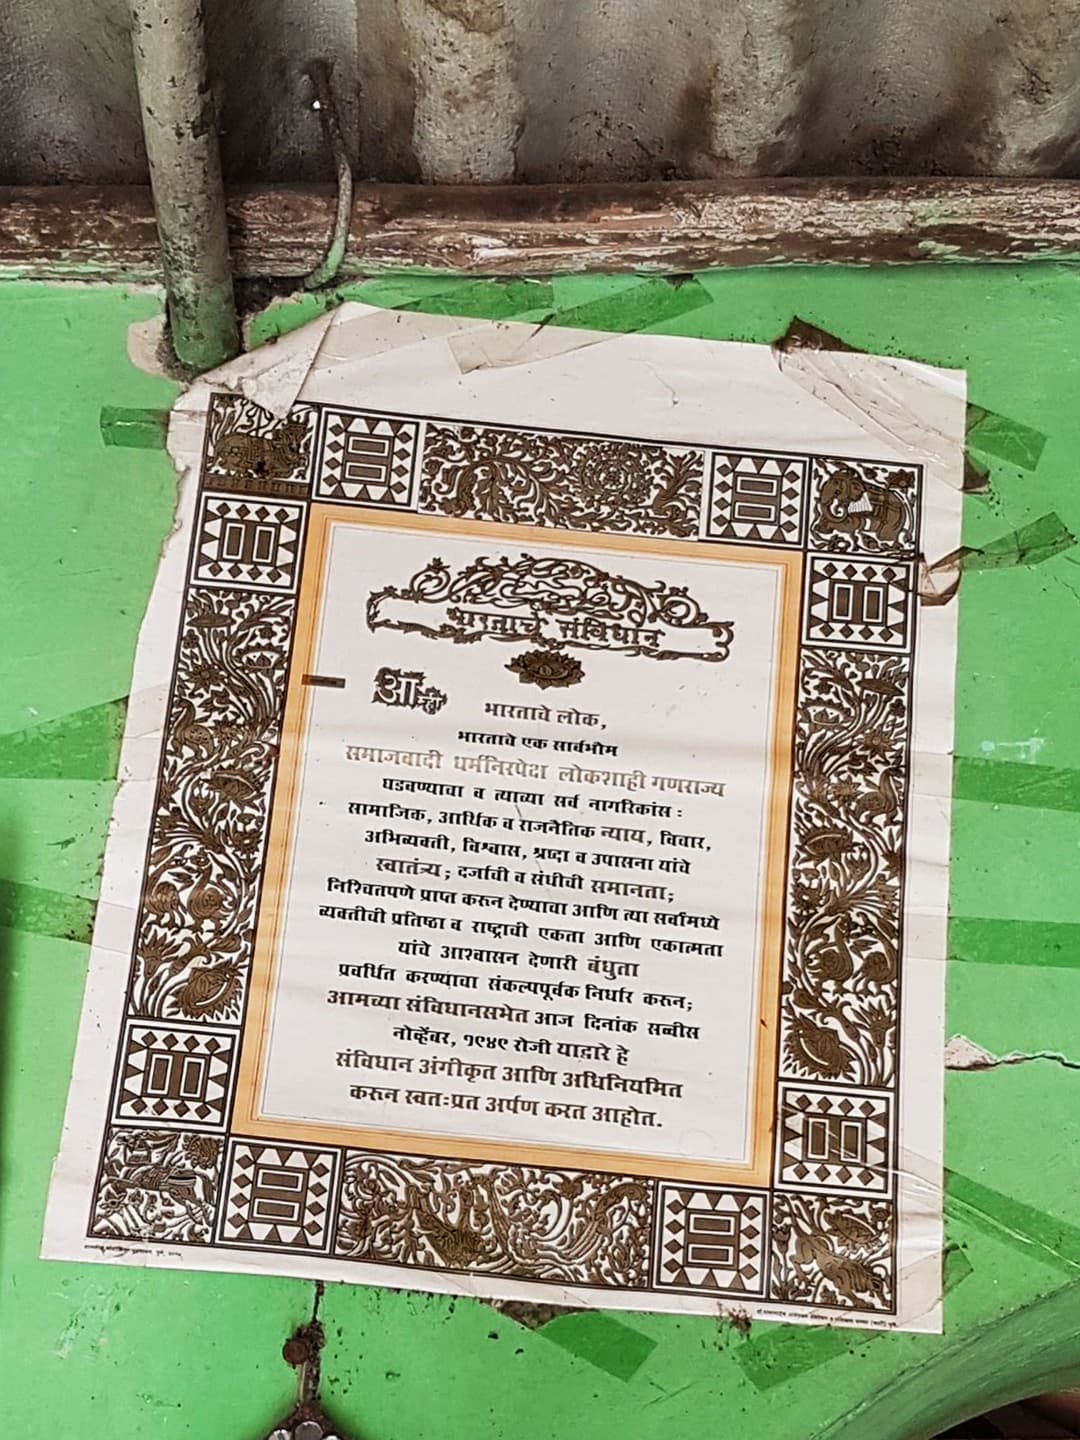 भारताचे संविधान
आम्ही
भारताचे लोक,
भारताचे एक सार्वभौम
समाजवादी धर्मनिरपेक्ष लोकशाही गणराज्य
घडवण्याचा व त्याच्या सर्व नागरिकांस :
सामाजिक, आर्थिक व राजनैतिक न्याय, विचार,
अभिव्यक्ती, विश्वास, श्रद्धा व उपासना यांचे
स्वातंत्र्य; दर्जाची व संधीची समानता;
निश्चितपणे प्राप्त करुन देण्याचा आणि त्या सर्वांमध्ये
व्यक्तीची प्रतिष्ठा व राष्ट्राची एकता आणि एकात्मता
यांचे आश्वासन देणारी बंधुता
प्रवर्धित करण्याचा संकल्पपूर्वक निर्धार करुन;
आमच्या संविधानसभेत आज दिनांक सव्वीस
नोव्हेंबर, १९४९ रोजी याद्वारे हे
संविधान अंगीकृत आणि अधिनियमित
करुन स्वतःप्रत अर्पण करत आहोत.